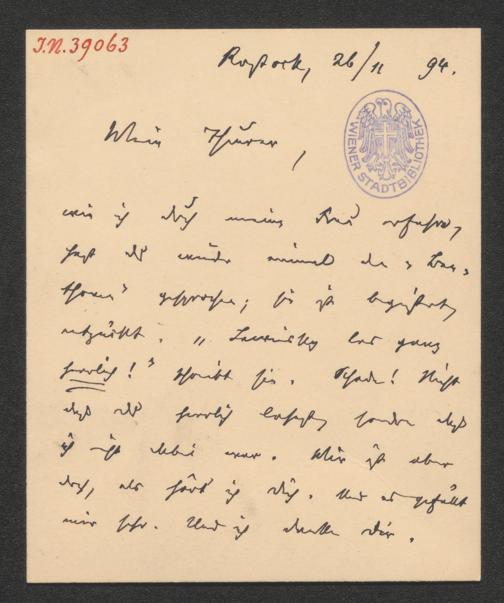 I.N. 39063
Rostock, 26/11 94.
WIENER STADTBIBLIOTHEK
Mein Theurer,
wie ich durch meine Frau erfahre,
hast du wieder einmal den
gesprochen; sie ist begeistert,
entzückt. „Lewinsky las ganz
herrlich!" schreibt sie. Schade! Nicht
daß du herrlich lasest, sondern daß
ich nicht dabei war. Mir ist aber
doch, als hört' ich dich. Und es gefällt
mir sehr. Und ich danke dir.